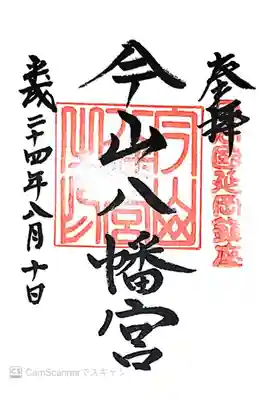 奉拝
國延岡鎮座
今山八幡宮
平成二十四年八月十日
CS CamScannerでスキャン